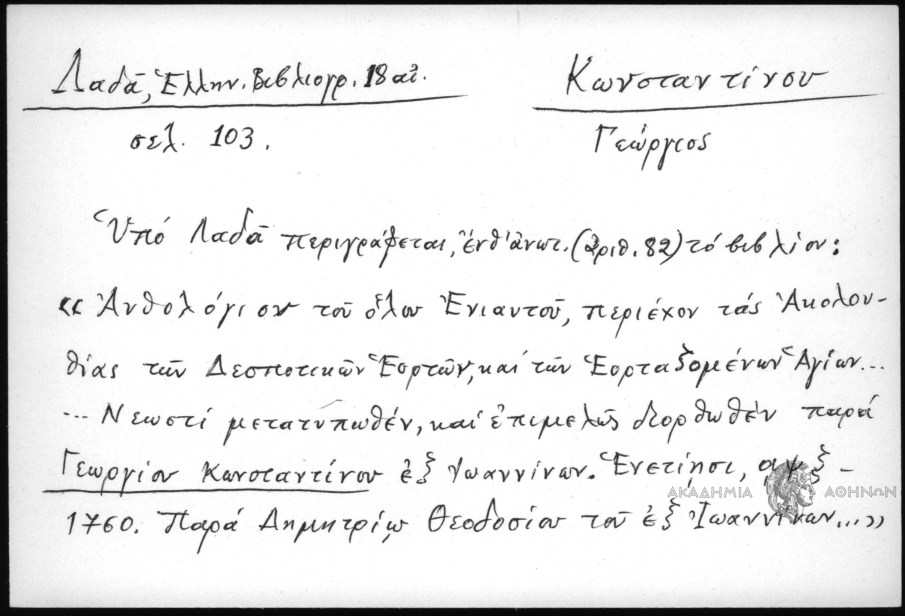 Λαδᾶ, Ἑλλην. Βιβλιογρ. 18 αἰ.
Κωνσταντίνου
σελ. 103.
Γεώργιος
Ὑπό Λαδᾶ περιγράφεται, ἔνθ' ἀνωτ. (ἀριθ. 82) τό βιβλίον:
«Ἀνθολόγιον τοῦ ὅλου Ἐνιαυτοῦ, περιέχον τάς Ἀκολου-
θίας τῶν Δεσποτικῶν Ἑορτῶν, καί τῶν Ἑορταζομένων Ἁγίων...
... Νεωστί μετατυπωθέν, καί ἐπιμελῶς διορθωθέν παρά
Γεωργίου Κωνσταντίνου ἐξ Ἰωαννίνων. Ἐνετίῃσι, αψξ -
1760. Παρά Δημητρίῳ Θεοδοσίου τοῦ ἐξ Ἰωαννίνων...»
ΑΚΑΔΗΜΙΑ ΑΘΗΝΩΝ